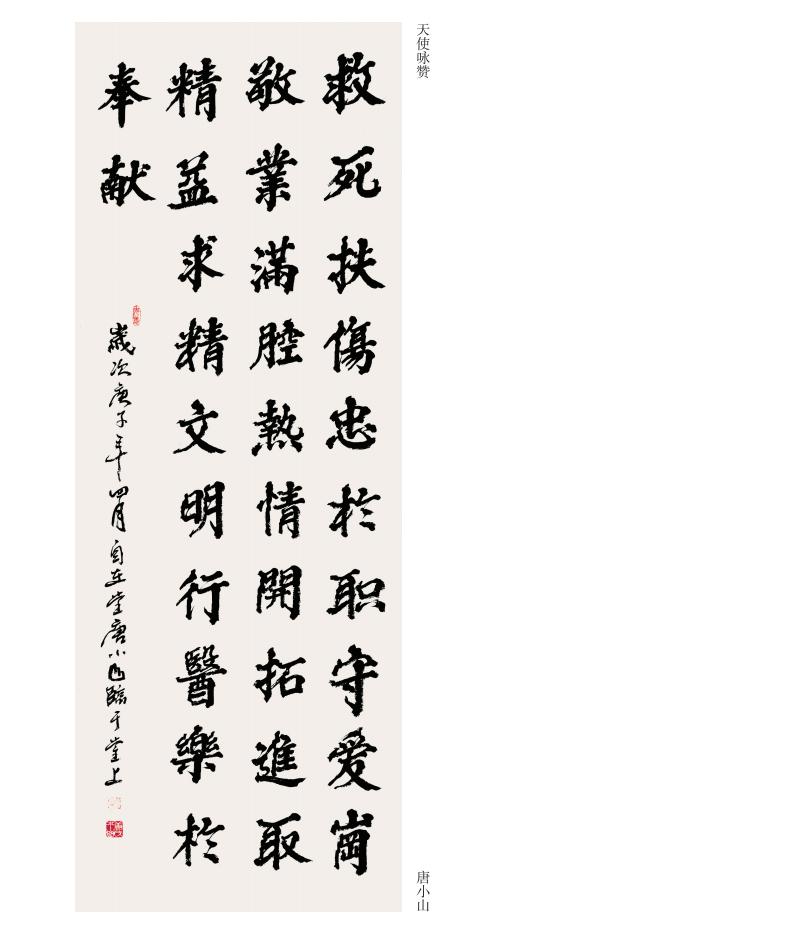 天使咏赞
救死扶傷忠於职守爱崗
敬業滿腔熱情開拓進取
精益求精文明行醫樂於
奉献
歲次庚子年四月自在堂唐小山臨于堂上
唐小山